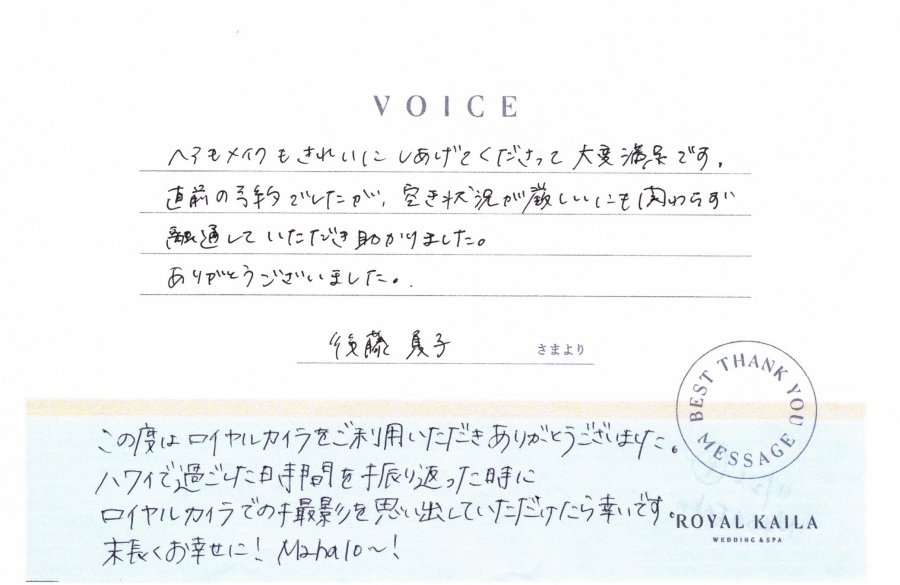 VOICE
ヘアもメイクもきれいにしあげてくださって大変満足です。
直前の予約でしたが、空き状況が厳しいにも関わらず
融通していただき助かりました。
ありがとうございました。
後藤 夏子 さまより
BEST THANK YOU MESSAGE
この度はロイヤルカイラをご利用いただきありがとうございました。
ハワイで過ごした時間を振り返った時に
ロイヤルカイラでの撮影を思い出していただけたら幸いです。
末長くお幸せに! Mahalo〜!
ROYAL KAILA
WEDDING & SPA